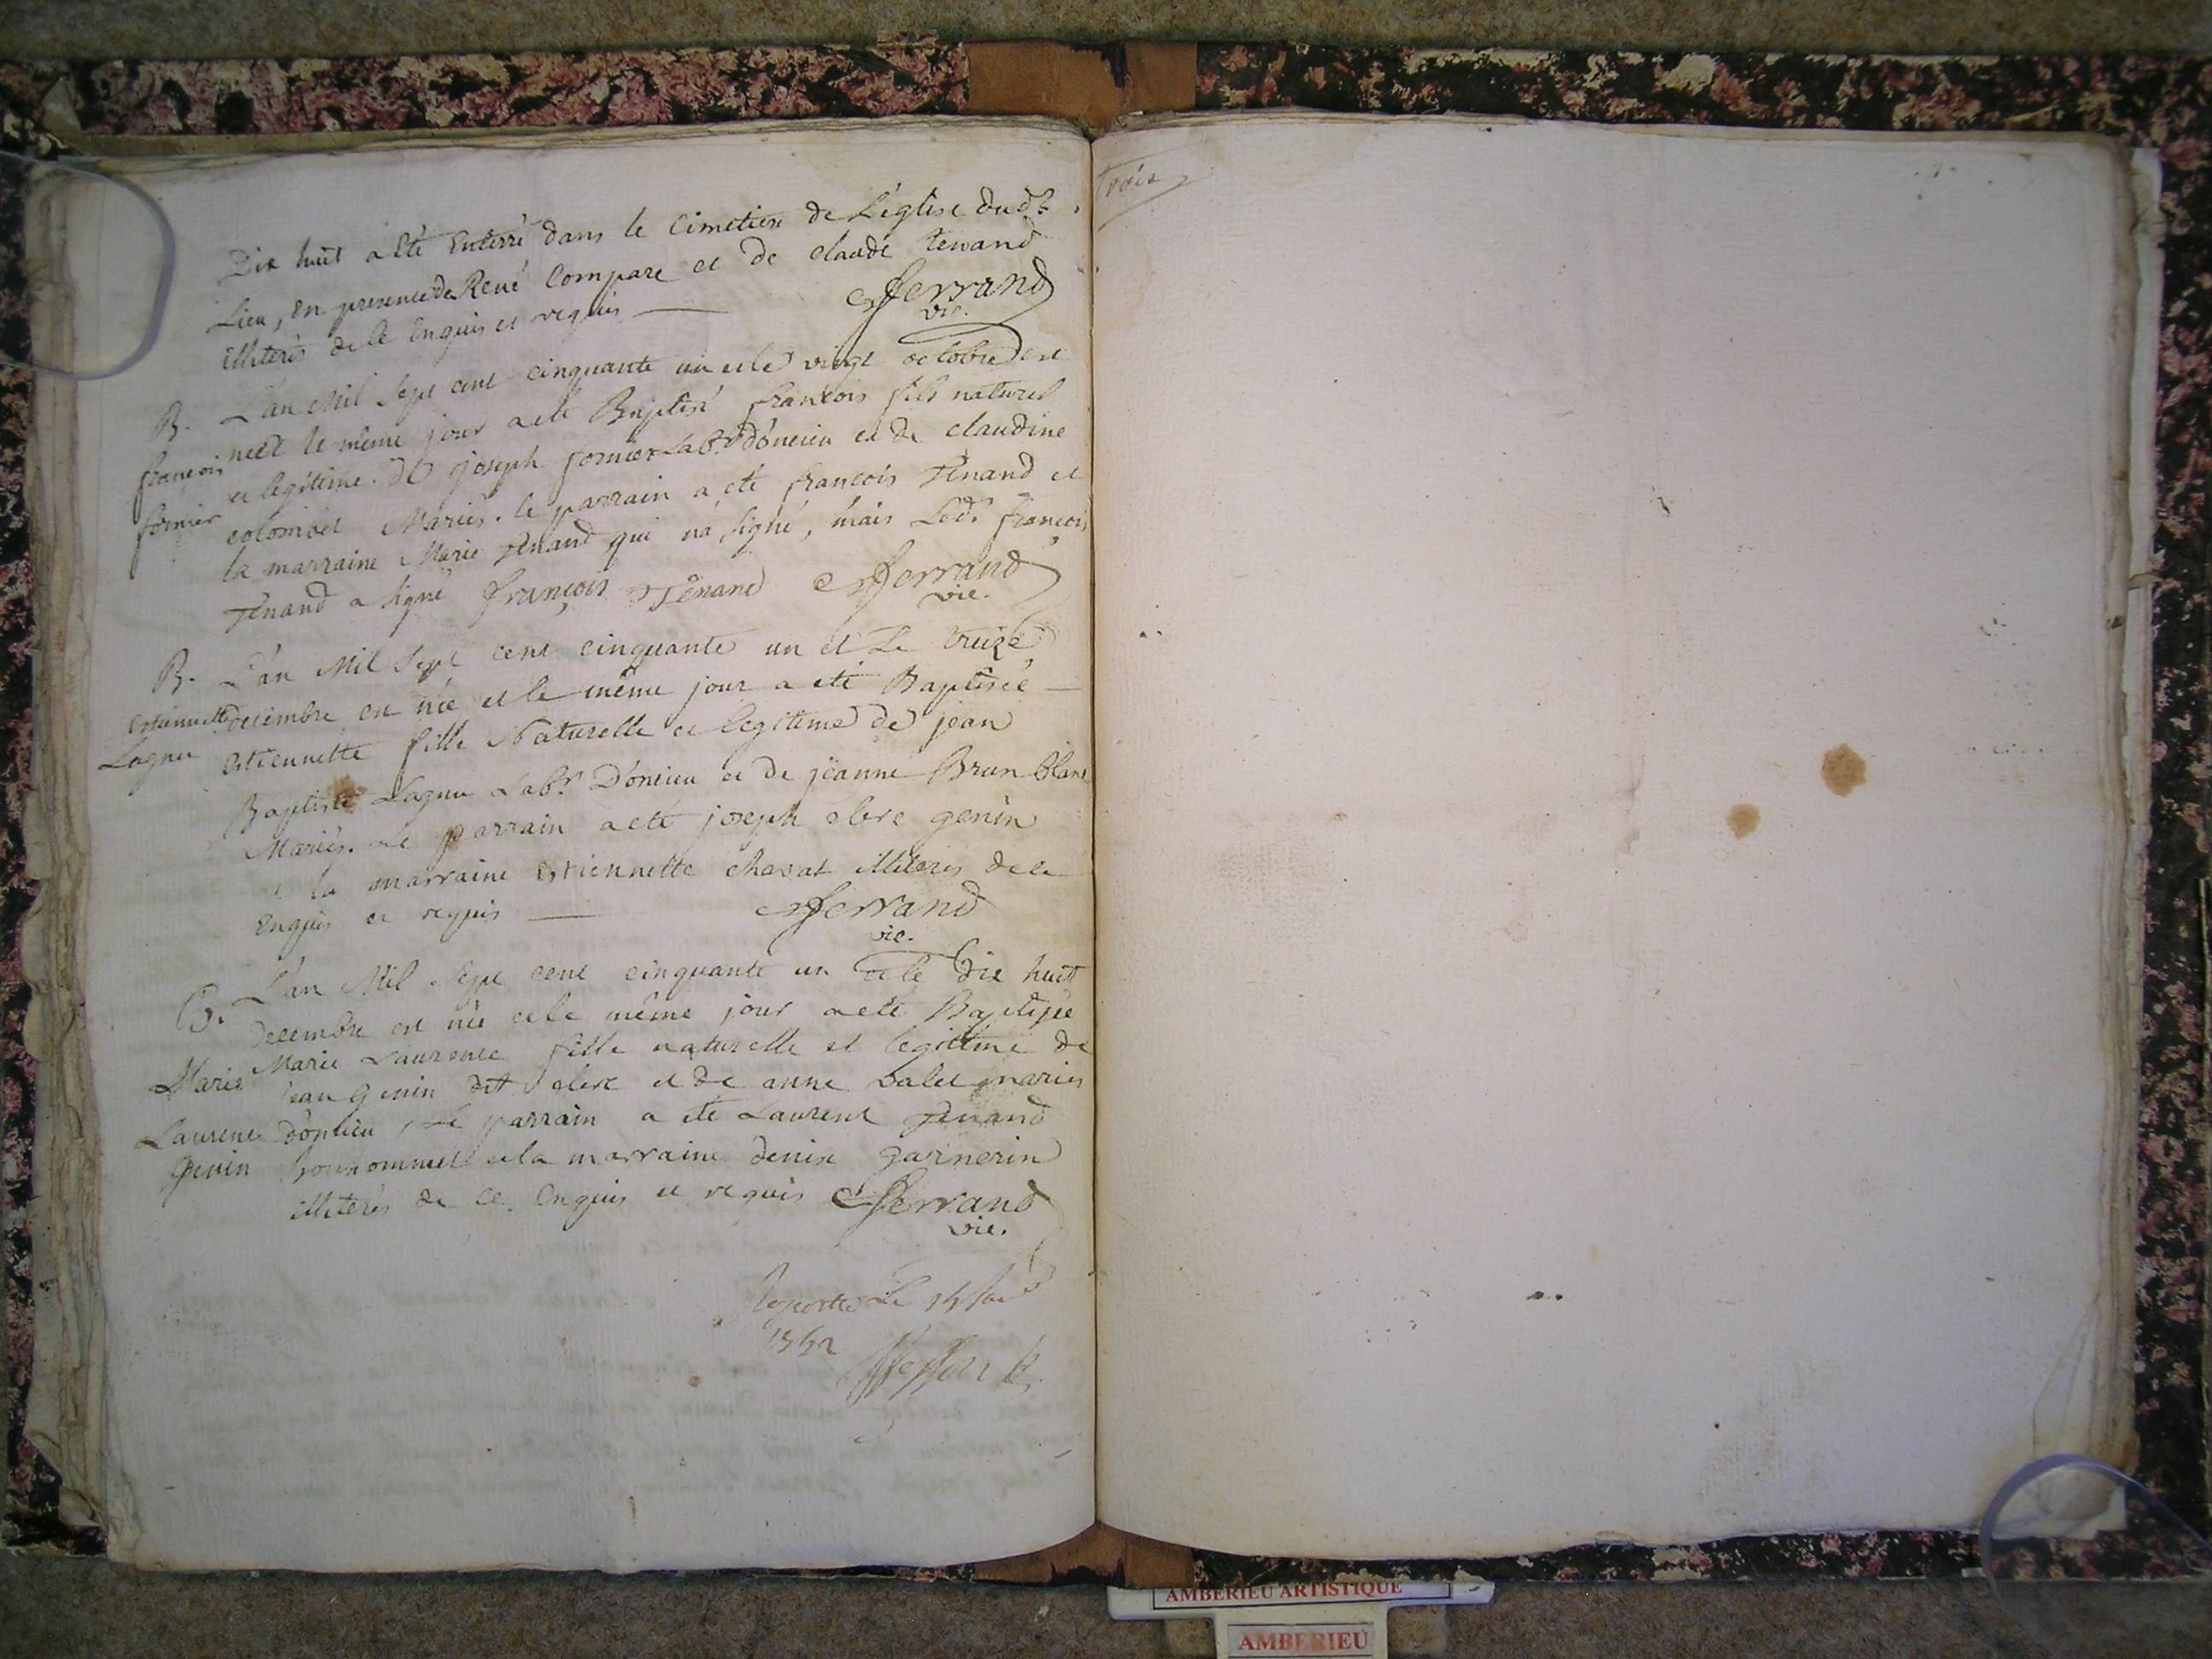 Dix huit a èté Enterré dans le Cimetiere de L'église dud.t
Lieu, en presence de René Compare et de claude tenand
illiterés de ce Enquis et requis — Ferrand
vic.
B. L'an Mil Sept cent cinquante un et le vingt octobre est
neèt le même jour a eté Baptisé francois fils naturel
françois et legitime de joseph fornier Lab.r d'oncieu et de claudine
fornier colombet Mariés. le parrain a eté francois Tenand et
la marraine Marie Tenand qui n'a signé, mais Led.t francois
Tenand a signé françois Tenand Ferrand
vic.
B. L'an Mil Sept cent cinquante un et Le treize
estiennette decembre est née et le même jour a eté Baptisée —
Lagneu estiennette fille Naturelle et legitime de jean
Baptiste Lagneu Lab.r D'oncieu et de jeanne Brun blanc
Mariés. Le parrain a eté joseph clerc genin
et la marraine Estiennette chavat illiterés de ce
Enquis et requis — Ferrand
vic.
B. L'an Mil Sept cent cinquante un et le dix huit
decembre est née et le même jour a eté Baptisée
Marie Laurence fille naturelle et legitime de
Marie jean genin dit clerc et de anne balet mariés
Laurence d'oncieu, Le parrain a eté Laurent Tenand
genin bonhomme et la marraine denise garnerin
illiterés de ce Enquis et requis Ferrand
vic.
Le
1752
trois
AMBERIEU ARTISTIQUE
AMBERIEU